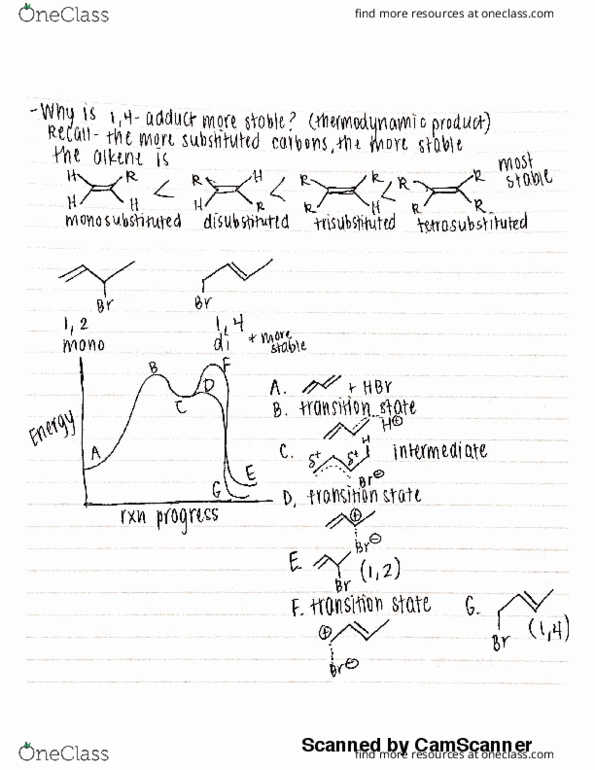 OneClass
find more resources at oneclass.com
- Why is 1,4-adduct more stable? (thermodynamic product)
Recall - the more substituted carbons, the more stable
the alkene is
most stable
H R H H
R H H R
R R R H
R R R R
< < <
monosubstituted disubstituted trisubstituted tetrasubstituted
Br Br
1,2 1,4
mono di * more stable
Energy
A B C D E F G
rxn progress
A. + HBr
B. transition state
H⊕
C. δ+ δ+ H intermediate
Br⊖
D. transition state
⊕
Br⊖
E. Br (1,2)
F. transition state
⊕
Br⊖
G. Br (1,4)
Scanned by CamScanner
OneClass
find more resources at oneclass.com